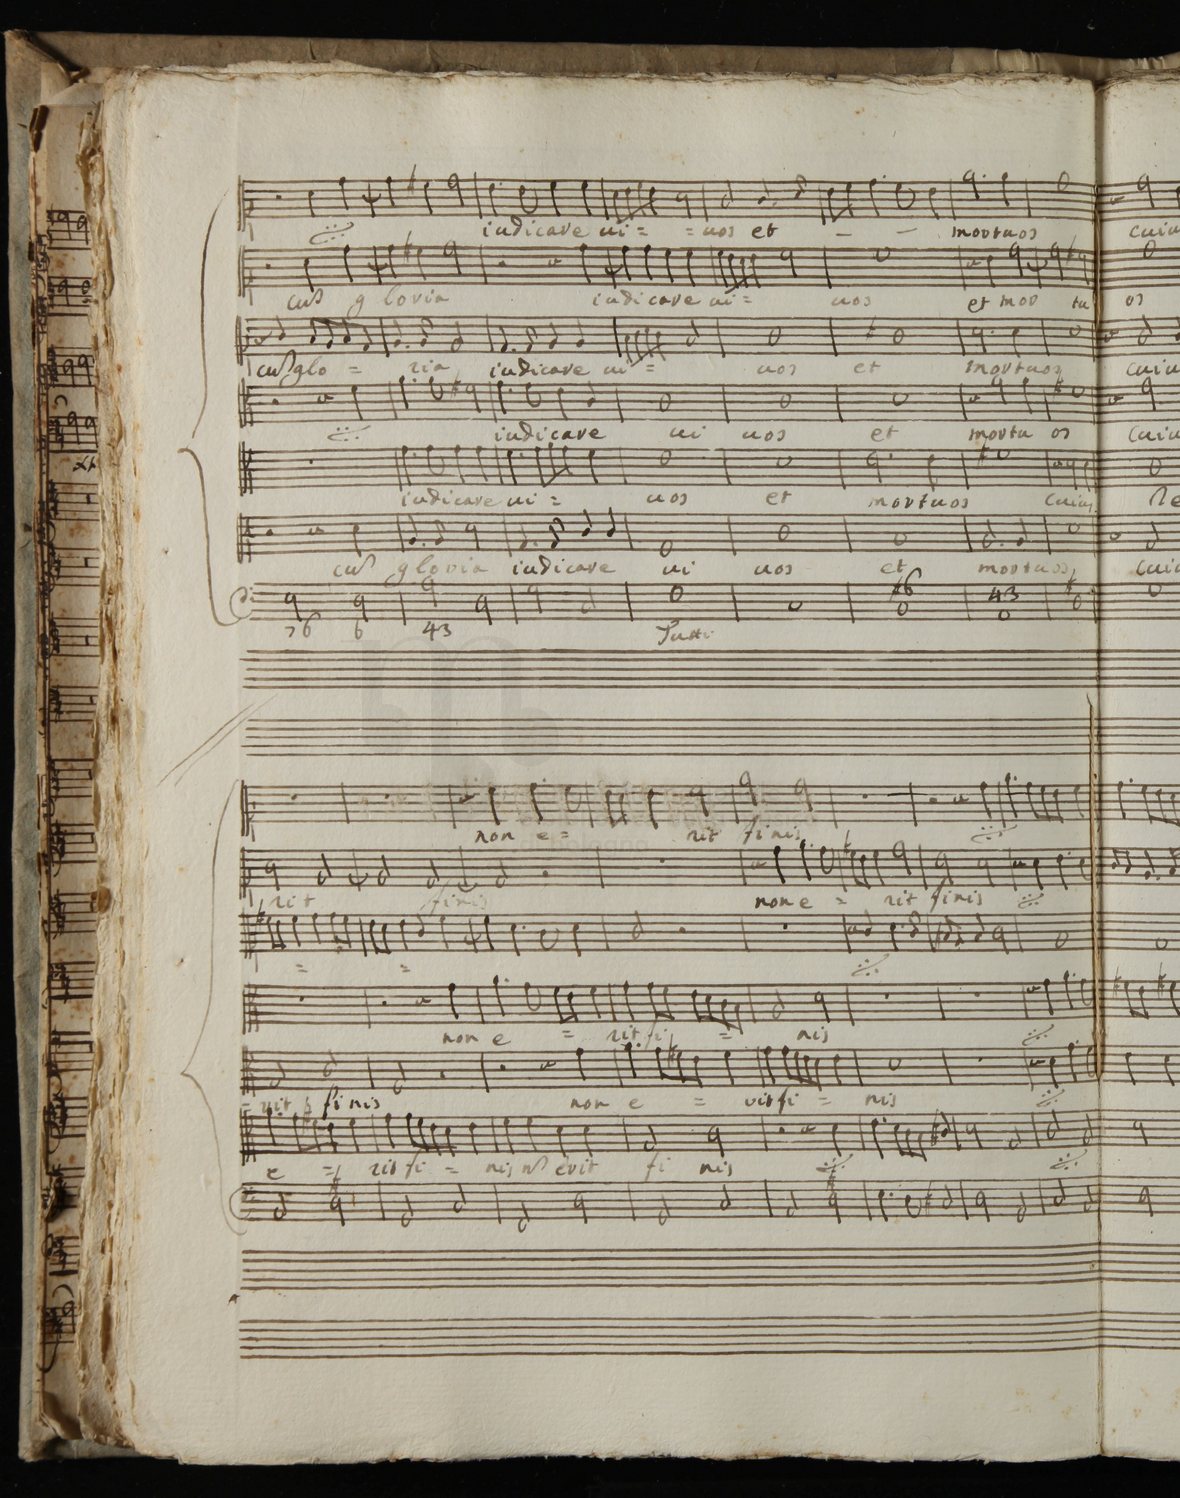 iudicare ui = = uos et - - mortuos cuiu
cuȷ gloria iudicare ui = uos et mor tu os
cuȷ glo = ria iudicare ui = uos et mortuos cuiu
iudicare ui uos et mortu os cuiu
iudicare ui = uos et mortuos cuius Re
cuȷ gloria iudicare ui uos et mortuos cuiu
76 43
76 6 43 Tutti
non e = rit finis
rit finis non e = rit finis
= =
non e = rit fi = nis
= rit finis non e = rit fi = nis
e = rit fi = nis erit fi nis